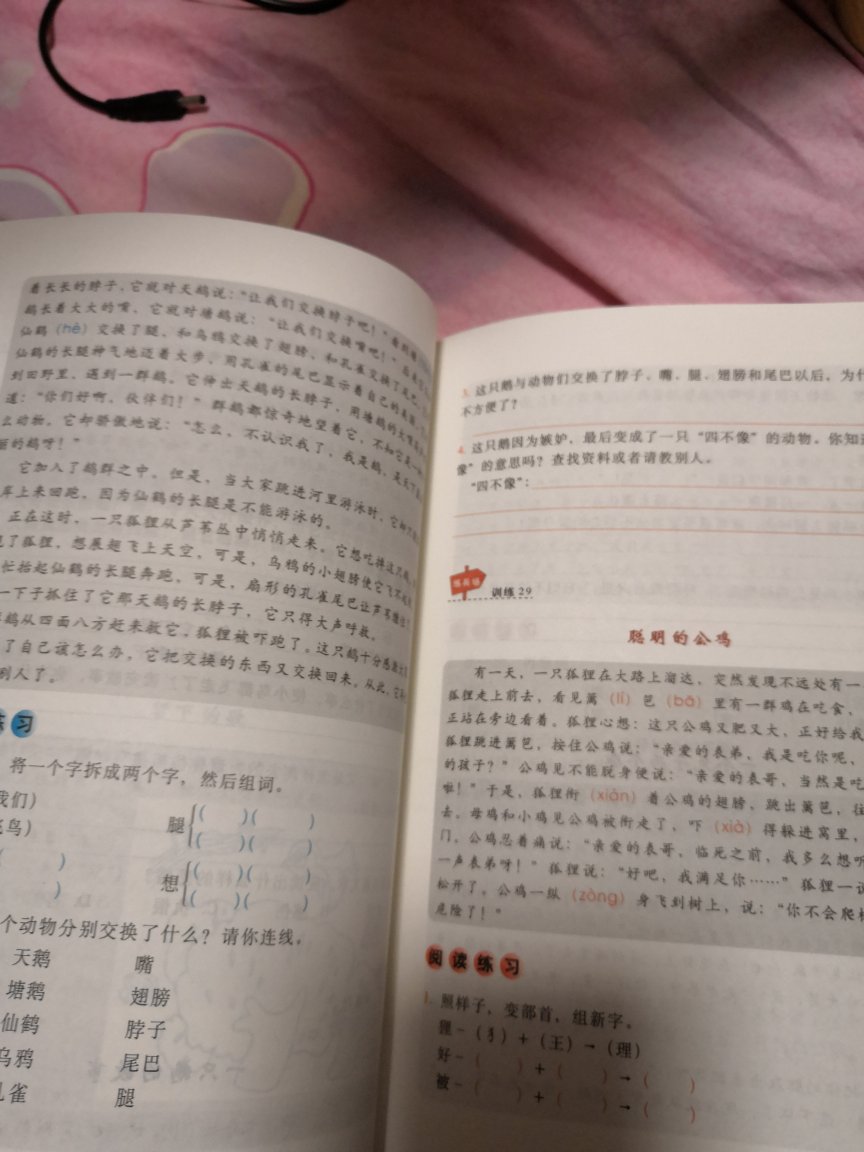 着长长的脖子，它就对天鹅说：“让我们交换脖子吧！”看到塘
鹅长着大大的嘴，它就对塘鹅说：“让我们交换嘴吧！”后来它
仙鹤（hè）交换了腿，和乌鸦交换了翅膀，和孔雀交换了尾巴
仙鹤的长腿神气地迈着大步，用孔雀的尾巴显示着自己的美丽
到田野里，遇到一群鹅。它伸出天鹅的长脖子，用塘鹅的大嘴
道：“你们好啊，伙伴们！”群鹅都惊奇地望着它，不知它是一
么动物。它却骄傲地说：“怎么，不认识我了，我是鹅，是天下
丽的鹅呀！”
它加入了鹅群之中。但是，当大家跳进河里游泳时，它却
岸上来回跑，因为仙鹤的长腿是不能游泳的。
正在这时，一只狐狸从芦苇丛中悄悄走来。它想吃掉这只
见了狐狸，想展翅飞上天空，可是，乌鸦的小翅膀使它飞不
忙抬起仙鹤的长腿奔跑，可是，扇形的孔雀尾巴让芦苇
一下子抓住了它那天鹅的长脖子，它只得大声呼救。
鹅从四面八方赶来救它，狐狸被吓跑了。这只鹅十分感激
了自己该怎么办，它把交换的东西又交换回来。从此，它
别人了。
练习
将一个字拆成两个字，然后组词。
我们）
飞鸟）
腿{（ ）（ ）
（ ）（ ）
（ ）
（ ）
想{（ ）（ ）
（ ）（ ）
个动物分别交换了什么？请你连线。
天鹅 嘴
塘鹅 翅膀
仙鹤 脖子
乌鸦 尾巴
孔雀 腿
3. 这只鹅与动物们交换了脖子、嘴、腿、翅膀和尾巴以后，为什
不方便了？
4. 这只鹅因为嫉妒，最后变成了一只“四不像”的动物。你知道
像”的意思吗？查找资料或者请教别人。
“四不像”：
训练29
聪明的公鸡
有一天，一只狐狸在大路上溜达，突然发现不远处有一
狐狸走上前去，看见篱（lí）笆（bā）里有一群鸡在吃食，
正站在旁边看着。狐狸心想：这只公鸡又肥又大，正好给我
狐狸跳进篱笆，按住公鸡说：“亲爱的表弟，我是吃你呢，
的孩子？”公鸡见不能脱身便说：“亲爱的表哥，当然是吃
啦！”于是，狐狸衔（xián）着公鸡的翅膀，跳出篱笆，往
去。母鸡和小鸡见公鸡被衔走了，吓（xià）得躲进窝里，
门。公鸡忍着痛说：“亲爱的表哥，临死之前，我多么想听
一声表弟呀！”狐狸说：“好吧，我满足你……”狐狸一说
松开了，公鸡一纵（zòng）身飞到树上，说：“你不会爬树
危险了！”
阅读练习
1. 照样子，变部首，组新字。
狸－（犭）＋（王）→（理）
好－（ ）＋（ ）→（ ）
被－（ ）＋（ ）→（ ）